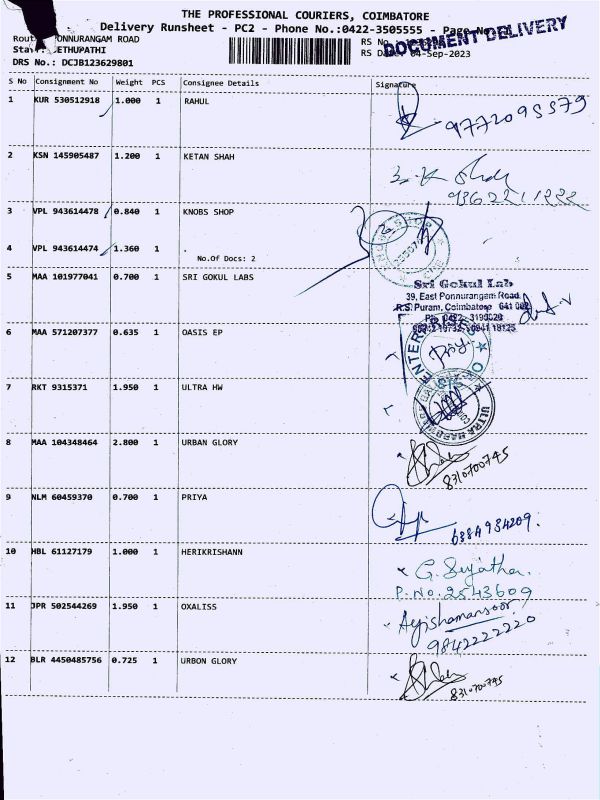 THE PROFESSIONAL COURIERS, COIMBATORE
Delivery Runsheet - PC2 - Phone No.:0422-3505555 - Page No.
DOCUMENT DELIVERY
ONNURANGAM ROAD
RS No
ETHUPATHI
RS Da 04-Sep-2023
DRS No.: DCJB123629801
S No Consignment No Weight PCS Consignee Details Signature
1 KUR 530512918 1.000 1 RAHUL
9772095579
2 KSN 145905487 1.200 1 KETAN SHAH
3 VPL 943614478 0.840 1 KNOBS SHOP
4 VPL 943614474 1.360 1 .
No.Of Docs: 2
5 MAA 101977041 0.700 1 SRI GOKUL LABS
Sri Gokul Lab
39, East Ponnurangam Road
R.S. Puram, Coimbatore
6 MAA 571207377 0.635 1 OASIS EP
7 RKT 9315371 1.950 1 ULTRA HW
ULTRA HARDWARE
8 MAA 104348464 2.800 1 URBAN GLORY
8310700745
9 NLM 60459370 0.700 1 PRIYA
10 HBL 61127179 1.000 1 HERIKRISHANN
G. Sujatha.
P.No. 2543609
11 JPR 502544269 1.950 1 OXALISS
Ayishamansoor
9842222220
12 BLR 4450485756 0.725 1 URBON GLORY
8310700745